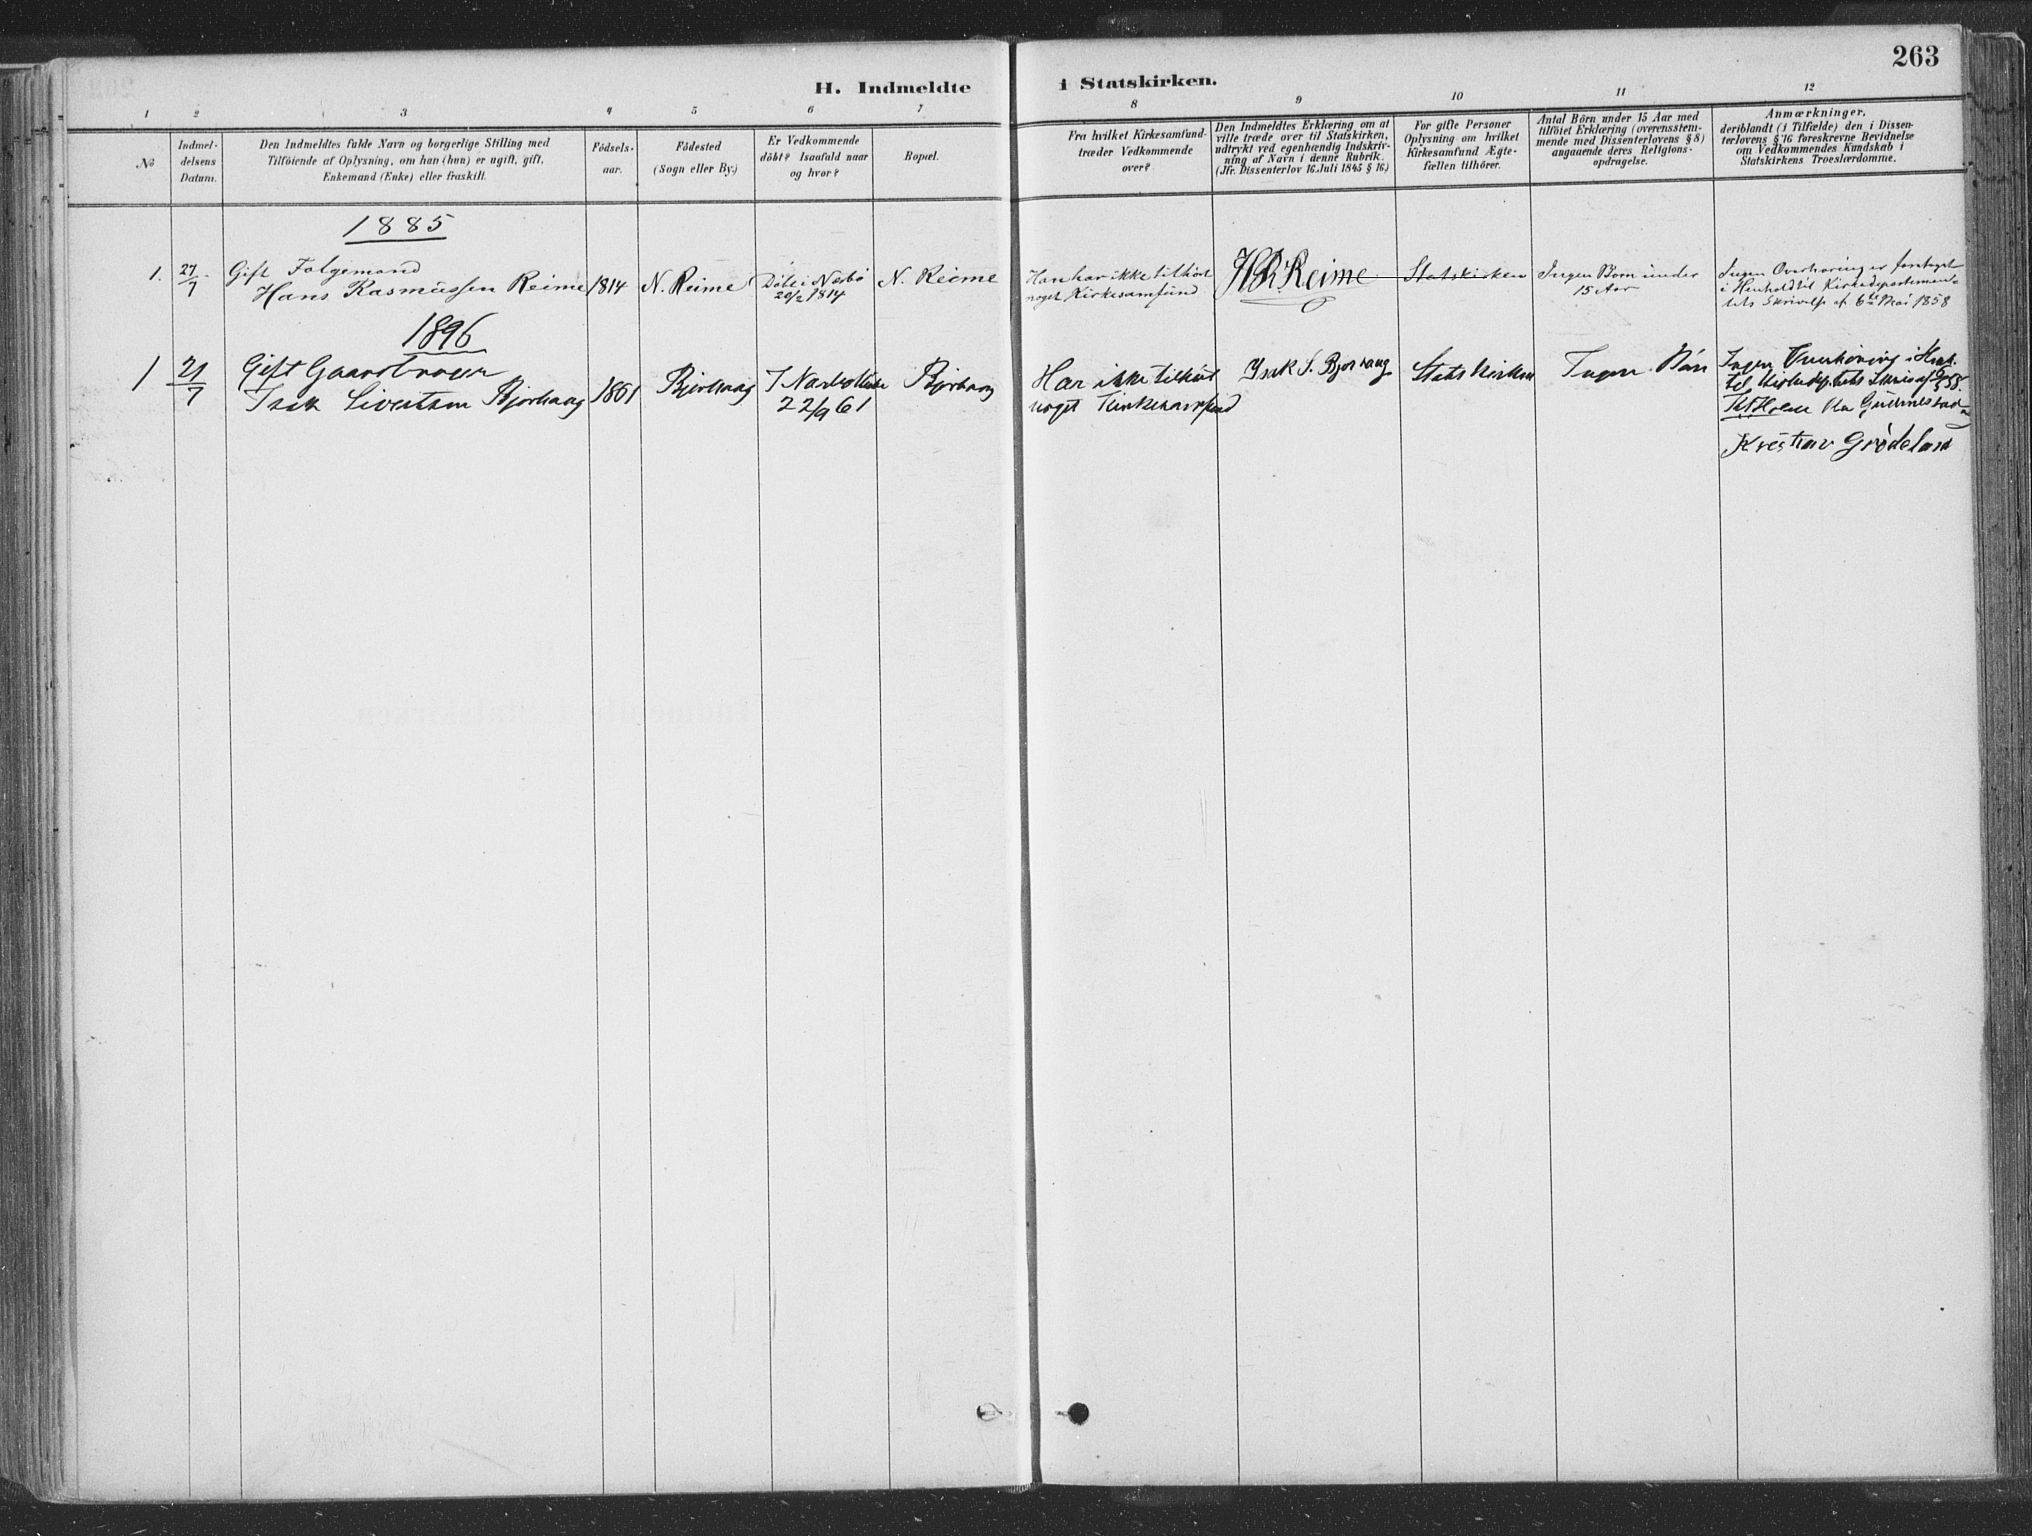 263
H. Indmeldte i Statskirken.
1 2 3 4 5 6 7 8 9 10 11 12
No
Indmel-
delsens
Datum.
Den Indmeldtes fulde Navn og borgerlige Stilling med
Tilföiende af Oplysning, om han (hun) er ugift, gift,
Enkemand (Enke) eller fraskilt.
Födsels-
aar.
Födested
(Sogn eller By.)
Er Vedkommende
döbt? Isaafald naar
og hvor?
Bopæl.
Fra hvilket Kirkesamfund
træder Vedkommende
over?
Den Indmeldtes Erklæring om at
ville træde over til Statskirken,
udtrykt ved egenhændig Indskriv-
ning af Navn i denne Rubrik.
(Jfr. Dissenterlov 16 Juli 1845 § 16.)
For gifte Personer
Oplysning om hvilket
Kirkesamfund Ægte-
fællen tilhörer.
Antal Börn under 15 Aar med
tilföiet Erklæring (overensstem-
mende med Dissenterlovens § 8)
angaaende deres Religions-
opdragelse.
Anmærkninger,
deriblandt (i Tilfælde) den i Dissen-
terlovens § 16 foreskrevne Bevidnelse
om Vedkommendes Kundskab i
Statskirkens Troeslærdomme.
1885
1.
27/7
Gift Folgemand
Hans Rasmussen Reime
1814
N. Reime
Döbt i Nærbö
20/2 1814
N. Reime
Han har ikke tilhört
noget Kirkesamfund
H R Reime
Statskirken
Ingen Born under
15 Aar
Ingen Overhöring er foretaget
i Henhold til Kirkedepartemen-
tets Skrivelse af 6te Mai 1858
1896
1
21/7
Gift Gaardbruger
Isak Sivertsen Bjorhaug
1861
Bjorhaug
I Nærbö
22/9 61
Bjorhaug
Har ikke tilhört
noget Kirkesamfund
Isak S. Bjorhaug
Statskirken
Ingen Börn
Ingen Overhöring i Henh.
til Kirkedeptets Skriv af
Kristian Grødeland